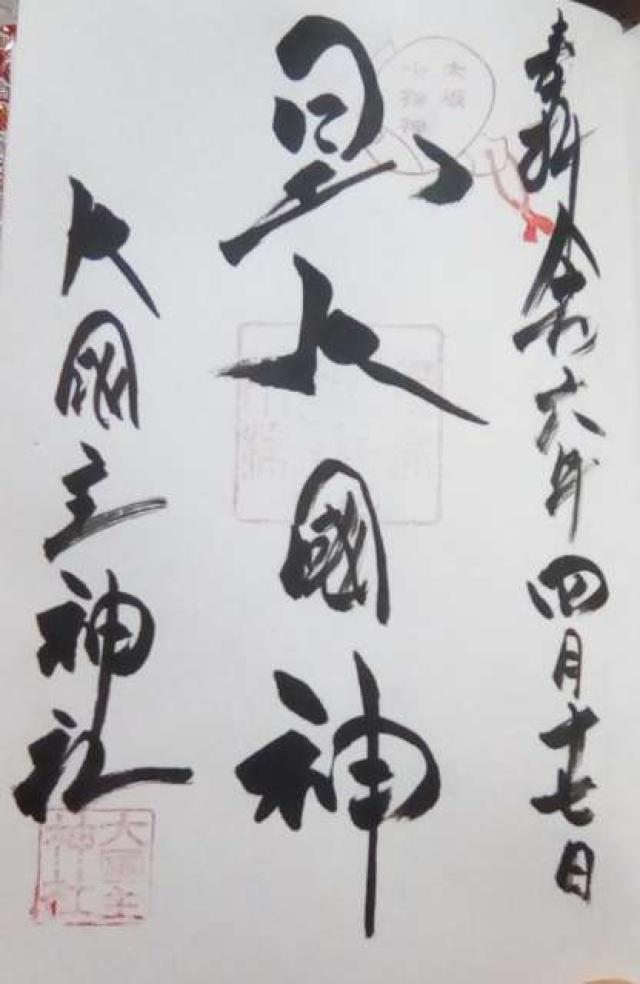 奉拝 令和六年四月十七日
大阪
七福神
大國神
大國主神社
大國主
神社